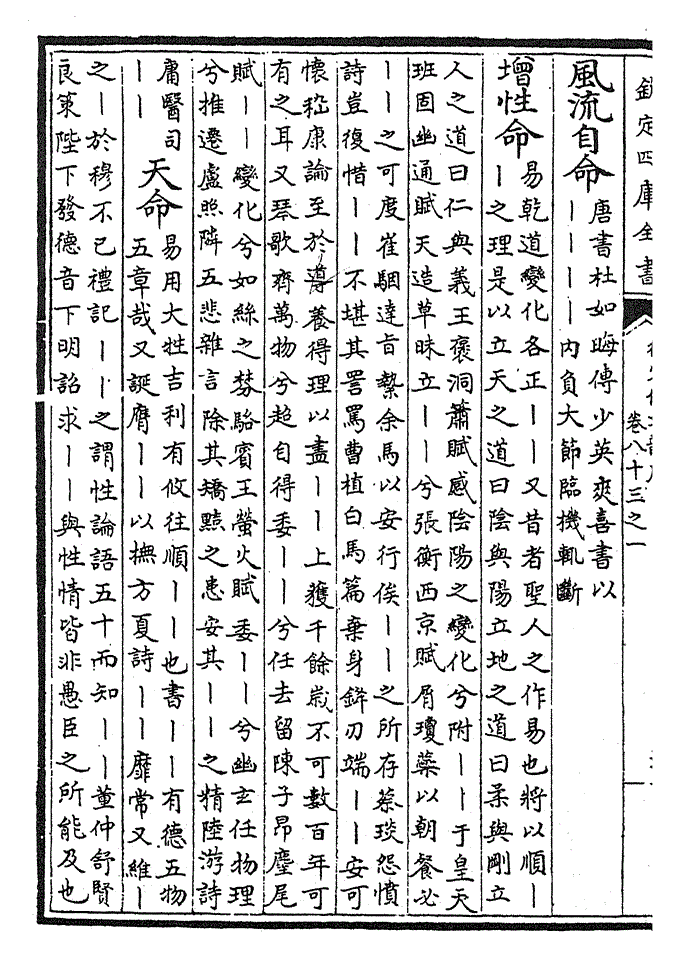 欽定四庫全書
卷八十三之一
風流自命
唐書杜如晦傳少英爽喜書以
丨丨丨丨内負大節臨機輒斷
增性命
易乾道變化各正丨丨又昔者聖人之作易也將以順丨
丨之理是以立天之道曰陰與陽立地之道曰柔與剛立
人之道曰仁與義王褒洞簫賦感陰陽之變化兮附丨丨于皇天
班固幽通賦天造草昧立丨丨兮張衡西京賦屑瓊蘂以朝餐必
丨丨之可度崔駰達旨縶余馬以安行俟丨丨之所存蔡琰怨憤
詩豈復惜丨丨不堪其詈罵曹植白馬篇棄身鋒刃端丨丨安可
懷嵇康論至於導養得理以盡丨丨上獲千餘歳不可數百年可
有之耳又琴歌齊萬物兮超自得委丨丨兮任去留陳子昂麈尾
賦丨丨變化兮如絲之棼駱賓王螢火賦委丨丨兮幽玄任物理
兮推遷盧照隣五悲雜言除其矯黠之患安其丨丨之精陸游詩
庸醫司
丨丨
天命
易用大牲吉利有攸往順丨丨也書丨丨有德五物
五章哉又誕膺丨丨以撫方夏詩丨丨靡常又維丨
之丨於穆不已禮記丨丨之謂性論語五十而知丨丨董仲舒賢
良策陛下發德音下明詔求丨丨與性情皆非愚臣之所能及也